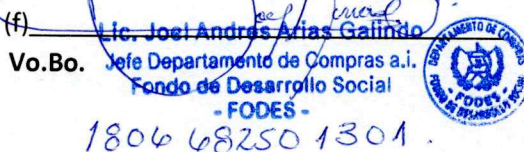 (f)
Lic. Joel Andres Arias Galindo
Vo.Bo. Jefe Departamento de Compras a.i.
Fondo de Desarrollo Social
- FODES -
1806 68250 1301.
DEPARTAMENTO DE COMPRAS
FODES
FONDO DE DESARROLLO SOCIAL